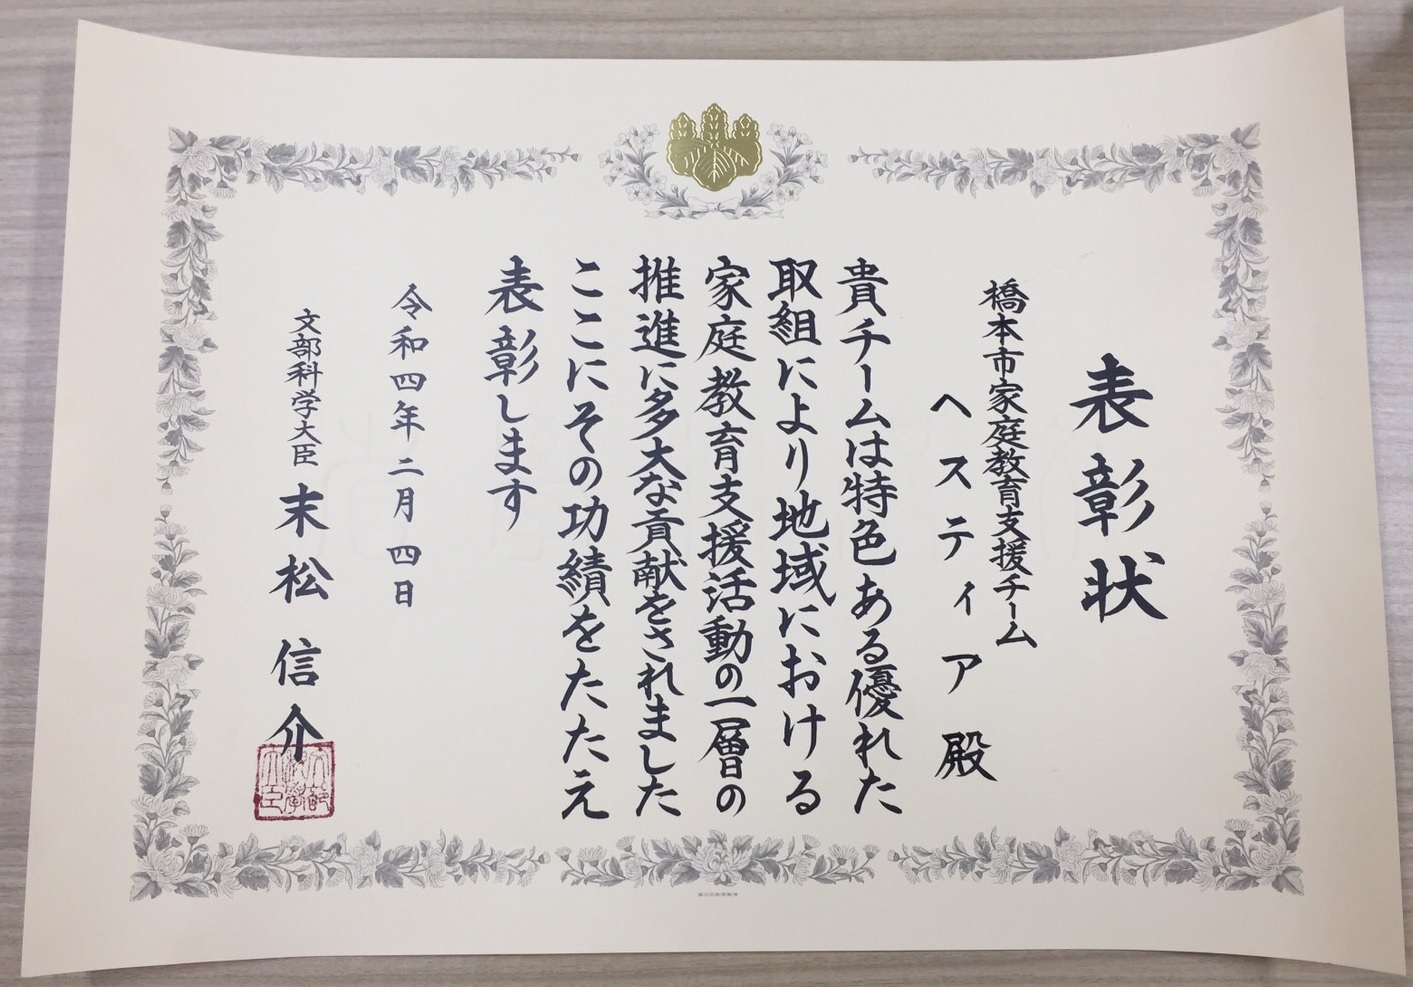 表彰状
橋本市家庭教育支援チーム
ヘスティア 殿
貴チームは特色ある優れた
取組により地域における
家庭教育支援活動の一層の
推進に多大な貢献をされました
ここにその功績をたたえ
表彰します
令和四年二月四日
文部科学大臣 末松信介